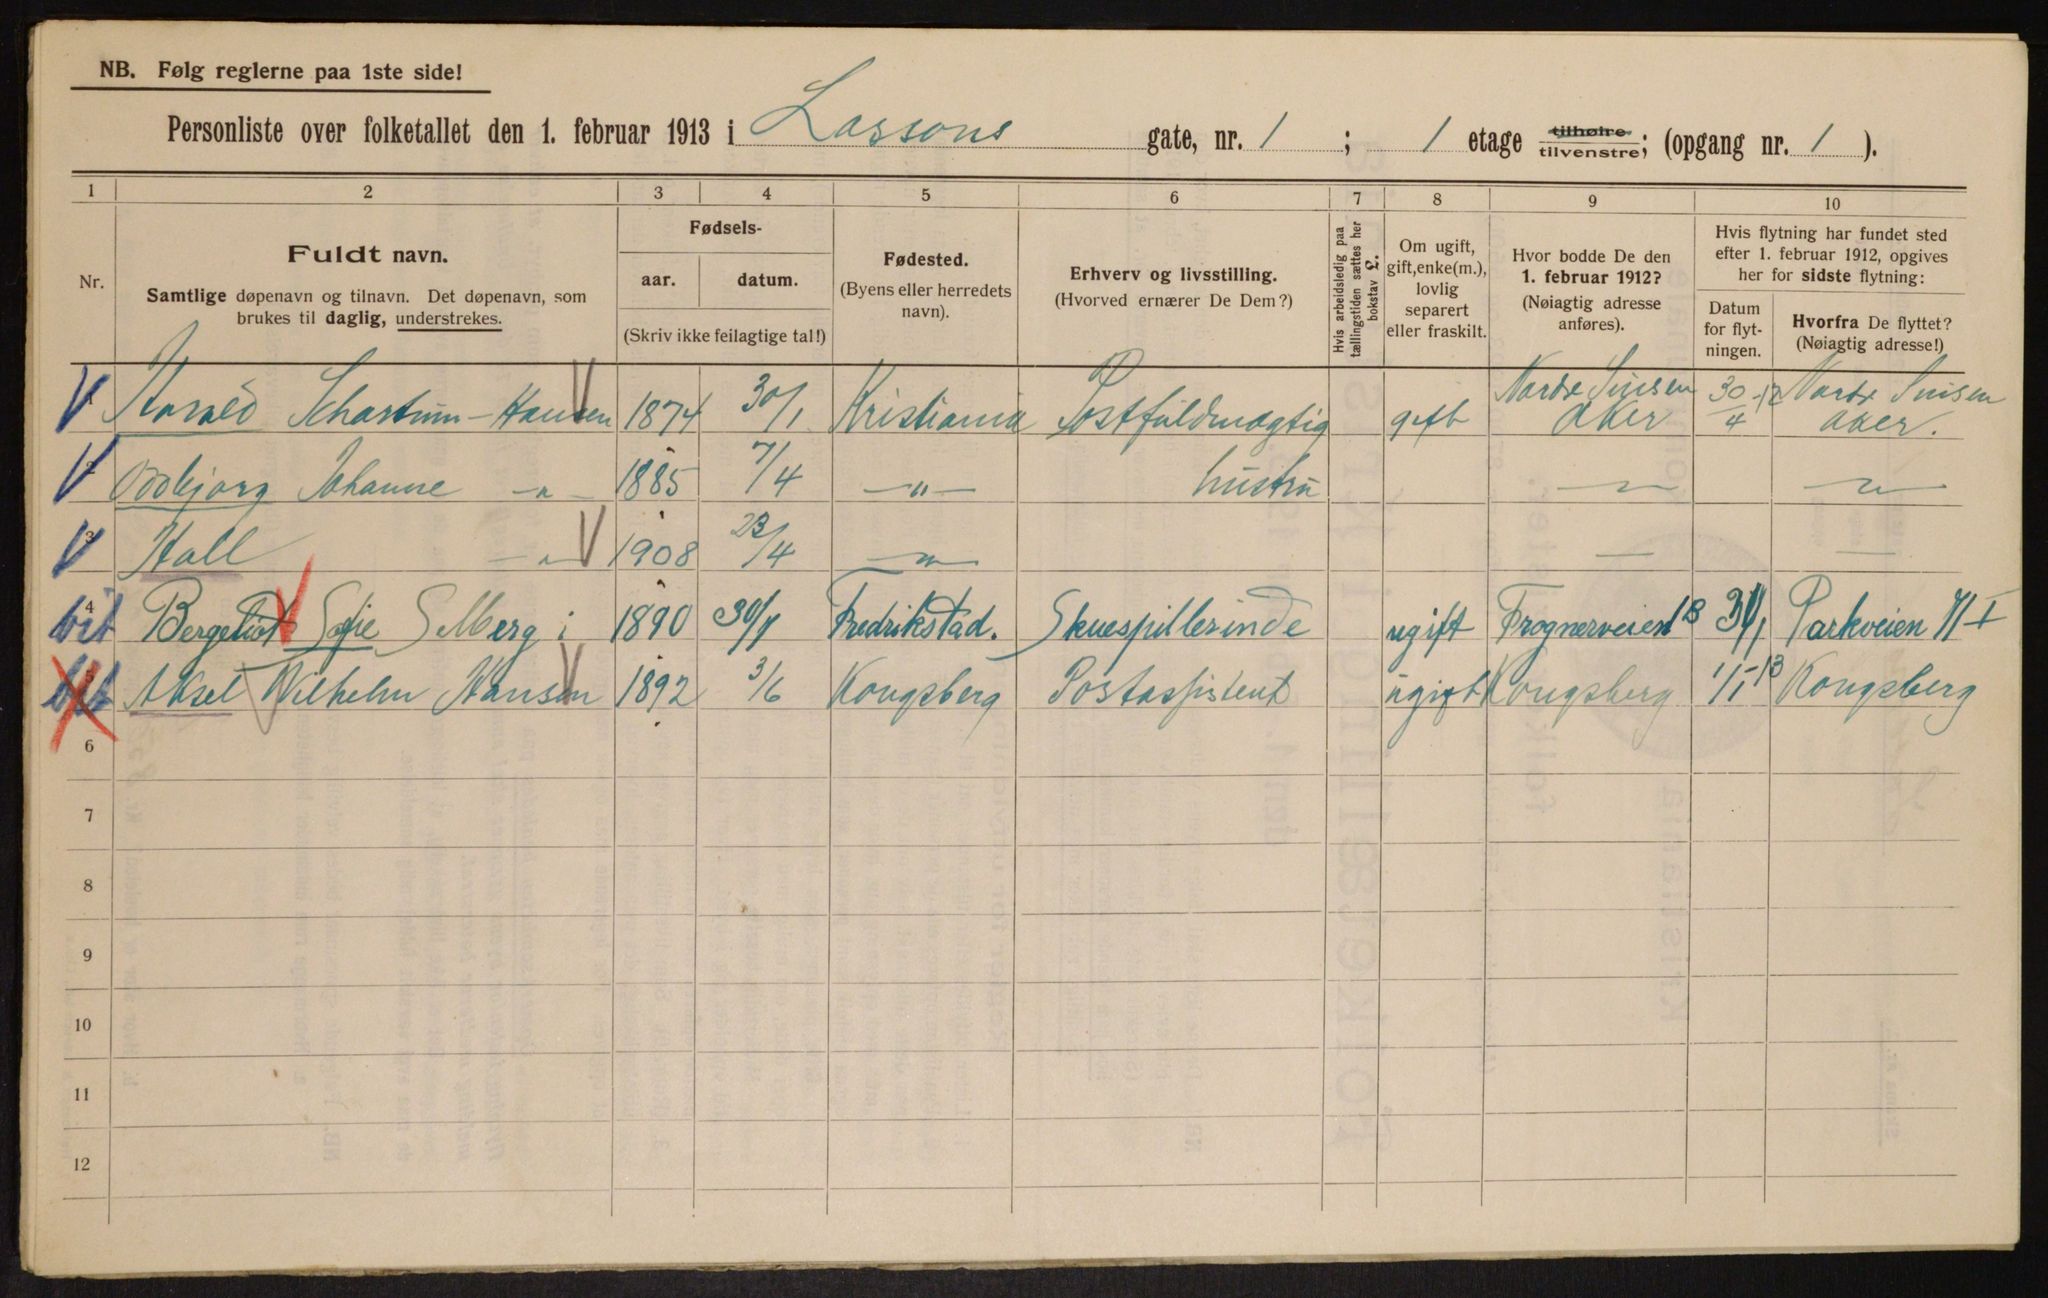 NB. Følg reglerne paa 1ste side!
Personliste over folketallet den 1. februar 1913 i Lassons gate, nr. 1 ; 1 etage tilhøire tilvenstre; (opgang nr. 1 ).
1 2 3 4 5 6 7 8 9 10
Nr.
Fuldt navn.
Samtlige døpenavn og tilnavn. Det døpenavn, som
brukes til daglig, understrekes.
Fødsels-
aar. datum.
(Skriv ikke feilagtige tal!)
Fødested.
(Byens eller herredets
navn).
Erhverv og livsstilling.
(Hvorved ernærer De Dem?)
Hvis arbeidsledig paa
tællingstiden sættes her
bokstav £.
Om ugift,
gift, enke(m.),
lovlig
separert
eller fraskilt.
Hvor bodde De den
1. februar 1912?
(Nøiagtig adresse
anføres).
Hvis flytning har fundet sted
efter 1. februar 1912, opgives
her for sidste flytning:
Datum
for flyt-
ningen.
Hvorfra De flyttet?
(Nøiagtig adresse!)
Schartum-Hansen 1874 30/1 Kristiania Postfuldmægtig gift Nordre Sinsen Aker 30/4-12 Nordre Sinsen Aker.
2 Oddbjørg Johanne -"- 1885 7/4 -"- hustru -"- -"-
3 Hall -"- 1908 23/4 -"- — —
4 bit Bergeliot Sofie Selberg 1890 30/7 Fredrikstad. Skuespillerinde ugift Frognerveien 18 Parkveien 71 I
5 Aksel Wilhelm Hansen 1892 3/6 Kongsberg Postassistent ugift Kongsberg 1/1-13 Kongsberg
6
7
8
9
10
11
12